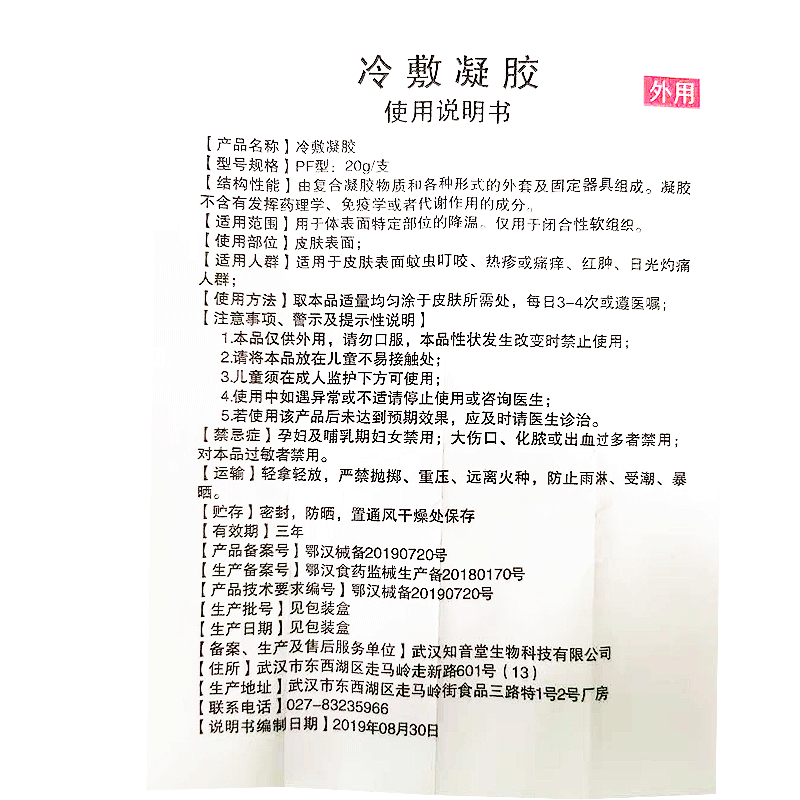 冷敷凝胶
外用
使用说明书
【产品名称】冷敷凝胶
【型号规格】PF型：20g/支
【结构性能】由复合凝胶物质和各种形式的外套及固定器具组成。凝胶
不含有发挥药理学、免疫学或者代谢作用的成分。
【适用范围】用于体表面特定部位的降温。仅用于闭合性软组织。
【使用部位】皮肤表面；
【适用人群】适用于皮肤表面蚊虫叮咬、热疹或瘙痒、红肿、日光灼痛
人群；
【使用方法】取本品适量均匀涂于皮肤所需处，每日3-4次或遵医嘱；
【注意事项、警示及提示性说明】
1.本品仅供外用，请勿口服，本品性状发生改变时禁止使用；
2.请将本品放在儿童不易接触处；
3.儿童须在成人监护下方可使用；
4.使用中如遇异常或不适请停止使用或咨询医生；
5.若使用该产品后未达到预期效果，应及时请医生诊治。
【禁忌症】孕妇及哺乳期妇女禁用；大伤口、化脓或出血过多者禁用；
对本品过敏者禁用。
【运输】轻拿轻放，严禁抛掷、重压、远离火种，防止雨淋、受潮、暴
晒。
【贮存】密封，防晒，置通风干燥处保存
【有效期】三年
【产品备案号】鄂汉械备20190720号
【生产备案号】鄂汉食药监械生产备20180170号
【产品技术要求编号】鄂汉械备20190720号
【生产批号】见包装盒
【生产日期】见包装盒
【备案、生产及售后服务单位】武汉知音堂生物科技有限公司
【住所】武汉市东西湖区走马岭走新路601号（13）
【生产地址】武汉市东西湖区走马岭街食品三路特1号2号厂房
【联系电话】027-83235966
【说明书编制日期】2019年08月30日